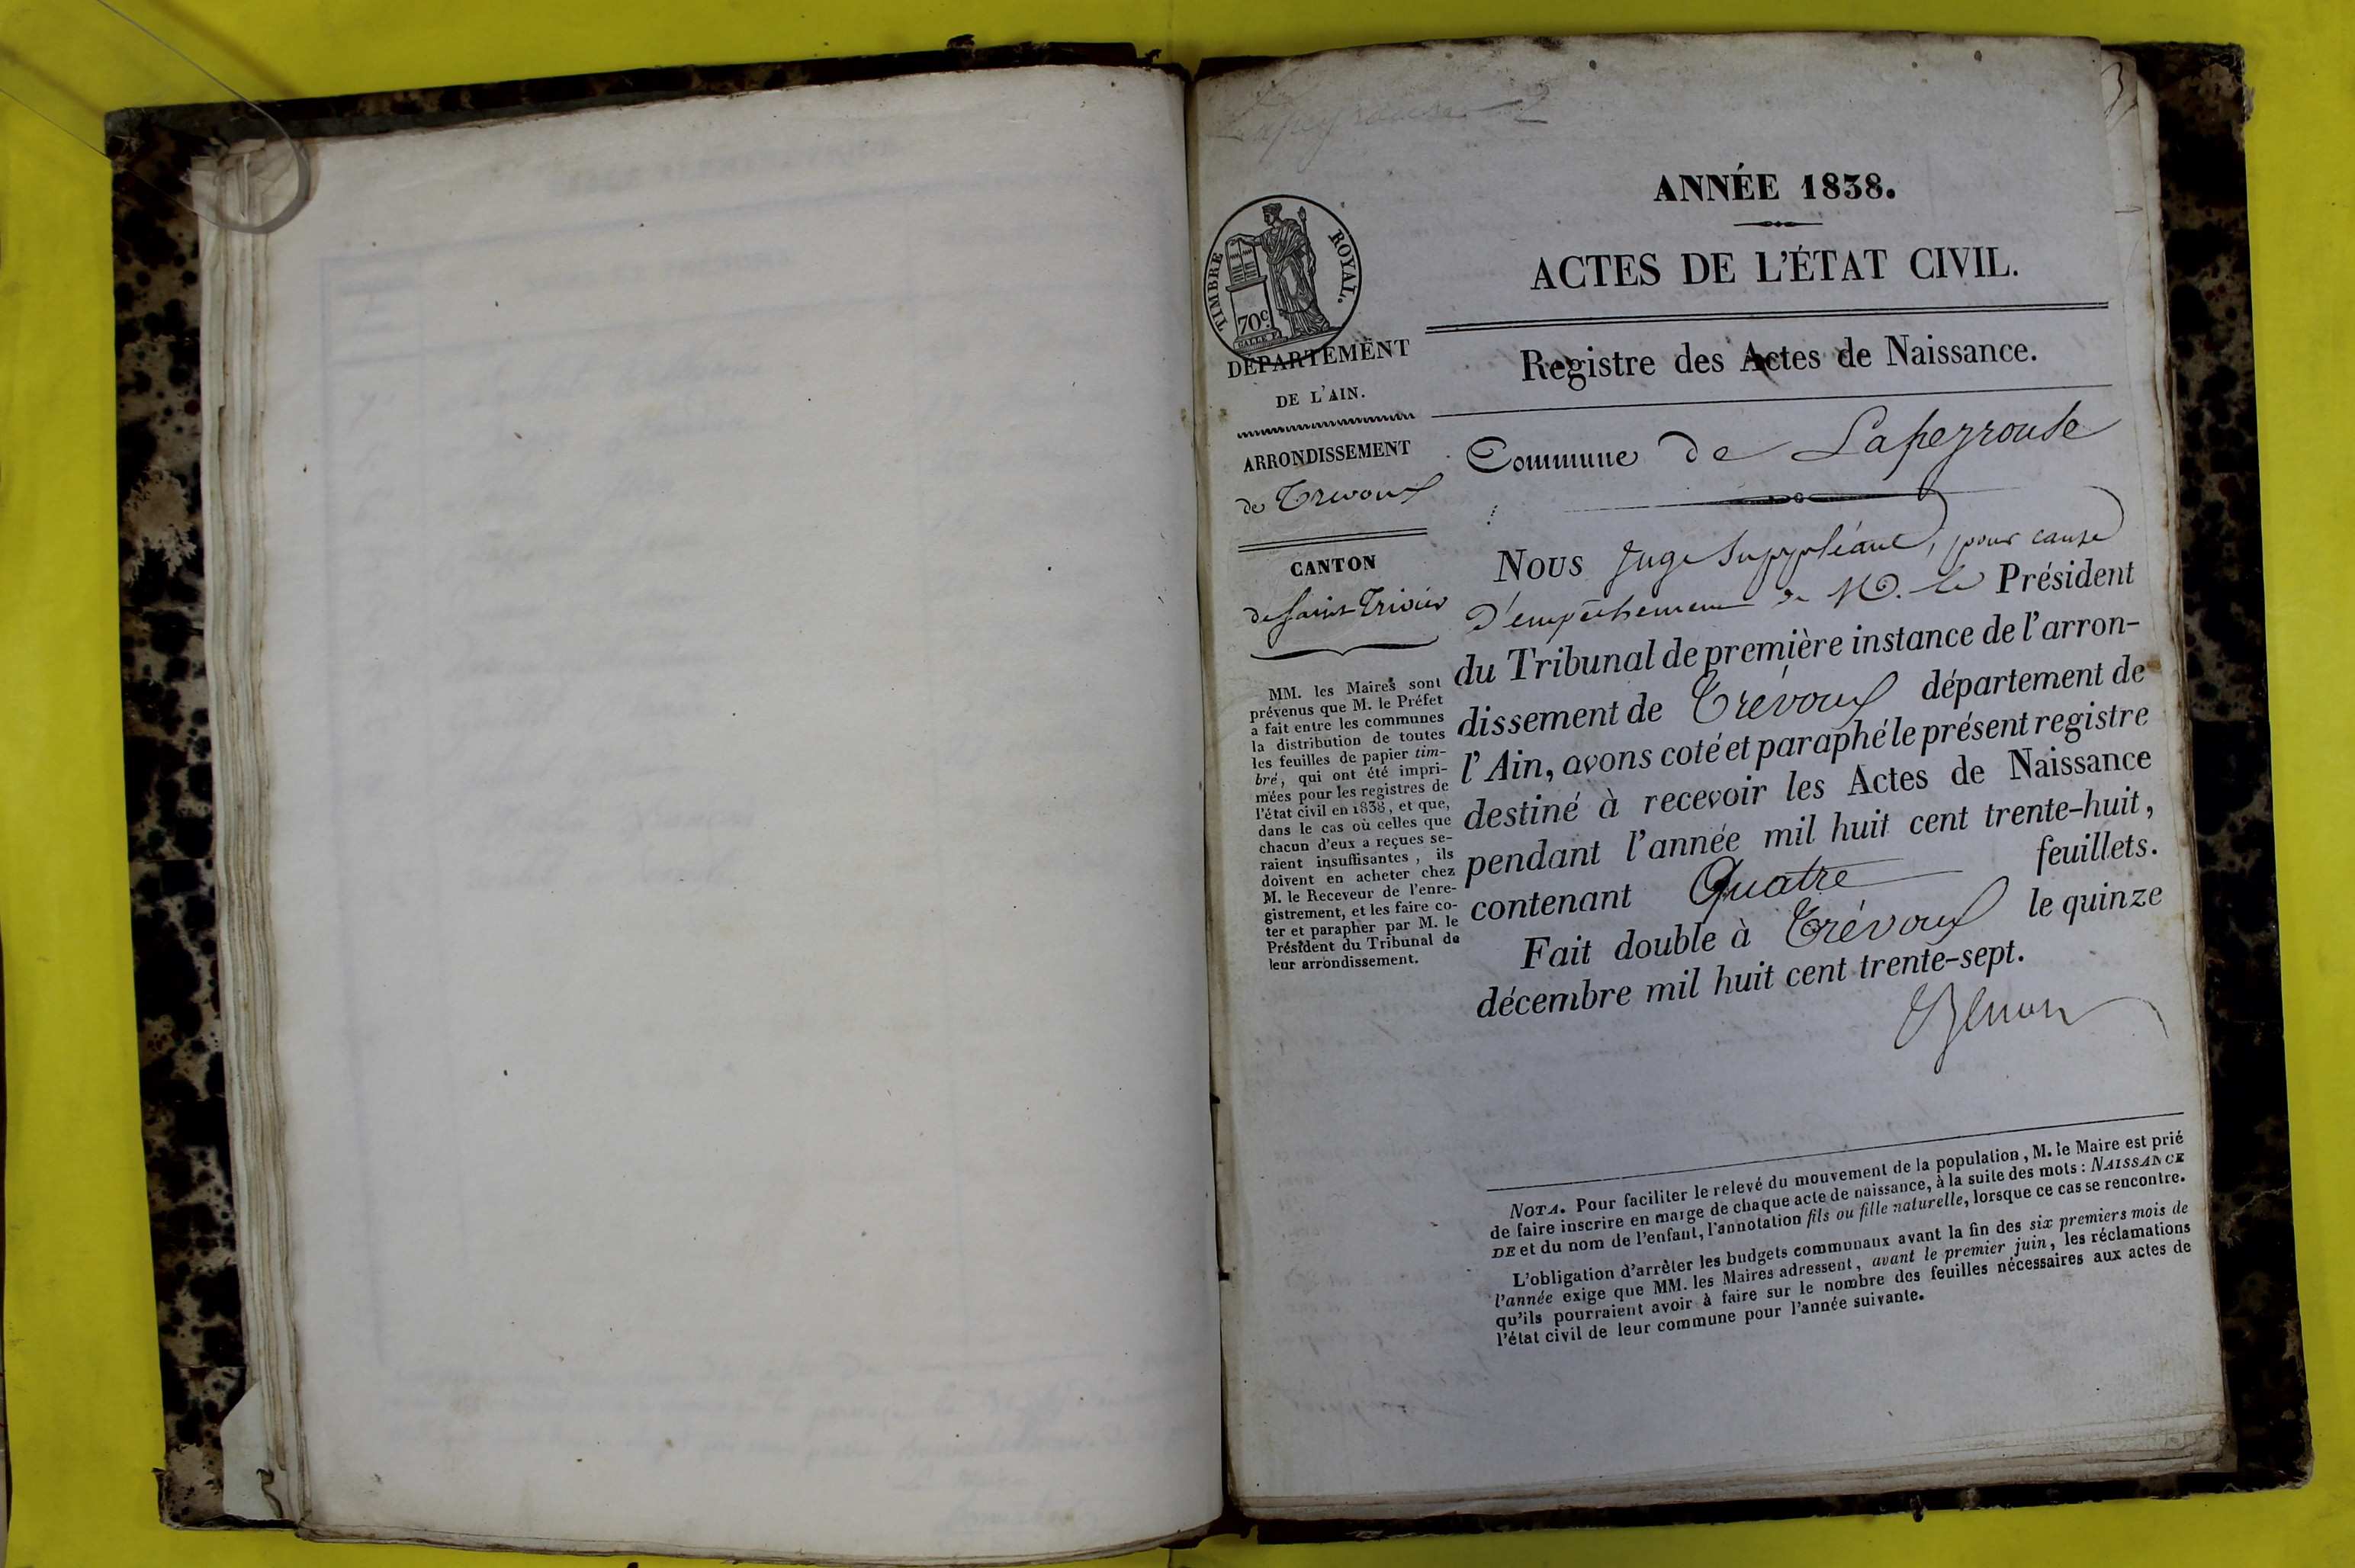 Lapeyrouse
ANNÉE 1838.
ACTES DE L'ÉTAT CIVIL.
Registre des Actes de Naissance.
Commune de Lapeyrouse
TIMBRE ROYAL.
70c
DÉPARTEMENT
DE L'AIN.
ARRONDISSEMENT
de Trevoux
CANTON
de Saint-Trivier
MM. les Maires sont
prévenus que M. le Préfet
a fait entre les communes
la distribution de toutes
les feuilles de papier tim-
bré, qui ont été impri-
mées pour les registres de
l'état civil en 1838, et que,
dans le cas où celles que
chacun d'eux a reçues se-
raient insuffisantes, ils
doivent en acheter chez
M. le Receveur de l'enre-
gistrement, et les faire co-
ter et parapher par M. le
Président du Tribunal de
leur arrondissement.
Nous Juge Suppléant, pour cause
d'empêchement de M. le Président
du Tribunal de première instance de l'arron-
dissement de Trévoux département de
l'Ain, avons coté et paraphé le présent registre
destiné à recevoir les Actes de Naissance
pendant l'année mil huit cent trente-huit,
contenant Quatre feuillets.
Fait double à Trévoux le quinze
décembre mil huit cent trente-sept.
NOTA. Pour faciliter le relevé du mouvement de la population, M. le Maire est prié
de faire inscrire en marge de chaque acte de naissance, à la suite des mots : NAISSANCE
DE et du nom de l'enfant, l'annotation fils ou fille naturelle, lorsque ce cas se rencontre.
L'obligation d'arrêter les budgets communaux avant la fin des six premiers mois de
l'année exige que MM. les Maires adressent, avant le premier juin, les réclamations
qu'ils pourraient avoir à faire sur le nombre des feuilles nécessaires aux actes de
l'état civil de leur commune pour l'année suivante.